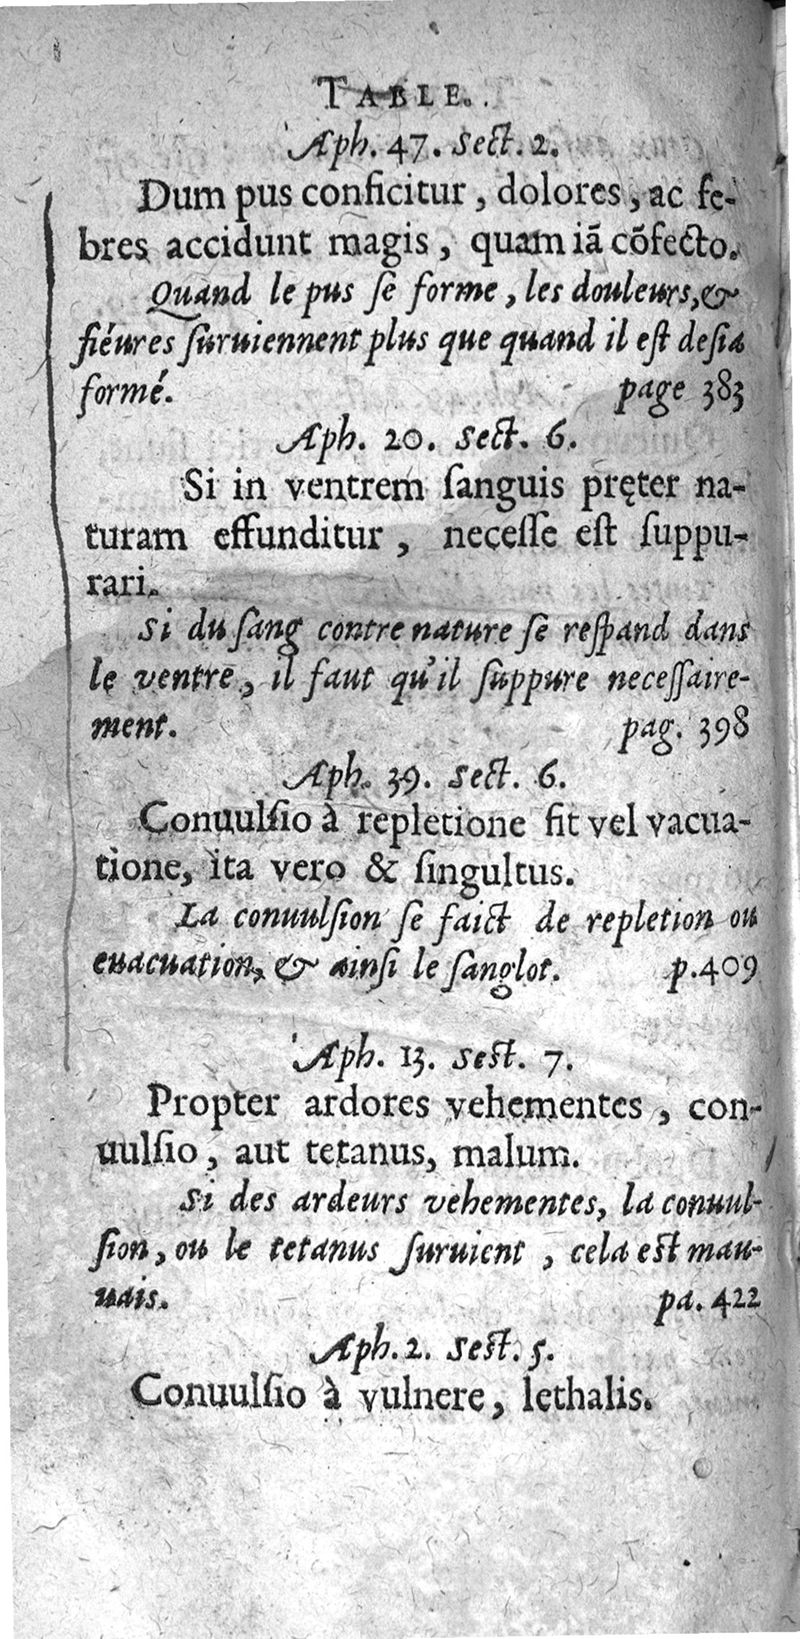 TABLE.
Aph. 47. Sect. 2.
Dum pus conficitur, dolores, ac fe-
bres accidunt magis, quam iã cõfecto.
Quand le pus ſe forme, les douleurs, &
fiéures ſuruiennent plus que quand il eſt deſia
formé. page 383
Aph. 20. Sect. 6.
Si in ventrem ſanguis pręter na-
turam effunditur, neceſſe eſt ſuppu-
rari.
Si du ſang contre nature ſe reſpand dans
le ventre, il faut qu'il ſuppure neceſſaire-
ment. pag. 398
Aph. 39. Sect. 6.
Conuulſio à repletione fit vel vacua-
tione, ita vero & ſingultus.
La conuulſion ſe faict de repletion ou
euacuation, & ainſi le ſanglot. p. 409
Aph. 13. Sect. 7.
Propter ardores vehementes, con-
uulſio, aut tetanus, malum.
Si des ardeurs vehementes, la conuul-
ſion, ou le tetanus ſuruient, cela eſt mau-
uais. pa. 422
Aph. 2. Sect. 5.
Conuulſio à vulnere, lethalis.